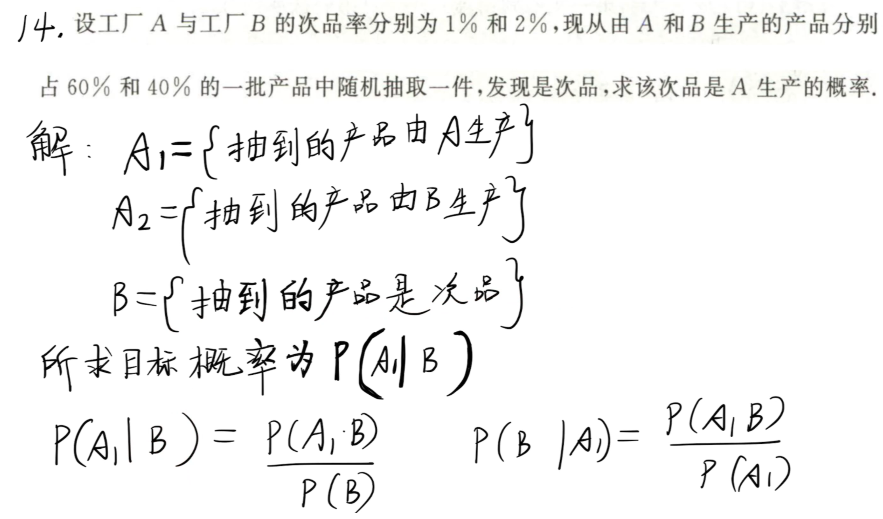 14. 设工厂 A 与工厂 B 的次品率分别为 1% 和 2%,现从由 A 和 B 生产的产品分别
占 60% 和 40% 的一批产品中随机抽取一件,发现是次品,求该次品是 A 生产的概率.
解: A₁={抽到的产品由A生产}
A₂={抽到的产品由B生产}
B={抽到的产品是次品}
所求目标概率为 P(A₁|B)
P(A₁|B) = P(A₁·B)/P(B) P(B|A₁) = P(A₁B)/P(A₁)